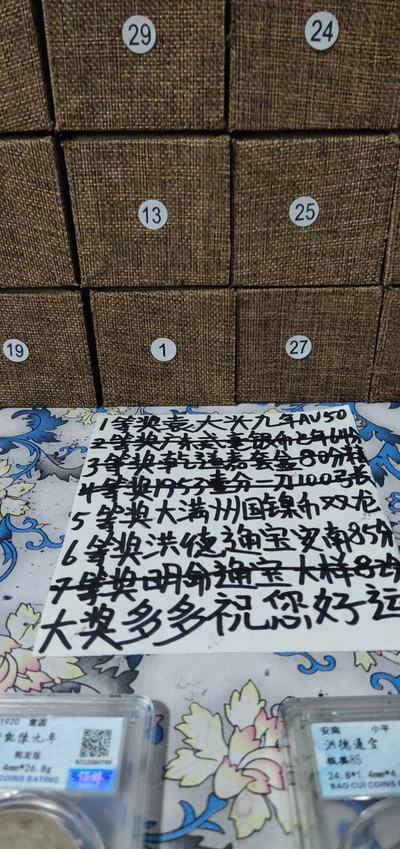 29
24
13
25
19
1
27
1等奖袁大头九年AU50
2等奖广东
3等奖乾道嘉套盒80分
4等奖1953壹分一刀100
5等奖大满州国镍币双龙
6等奖洪德通宝安南85分
7等奖明命通宝大样82分
大奖多多祝您好运
1920 壹圆
4mm*26.8g
COINS RATING
安南 小平
洪德通宝
极美85
24.8*1.4mm*4.
BAO CUI COINS RA